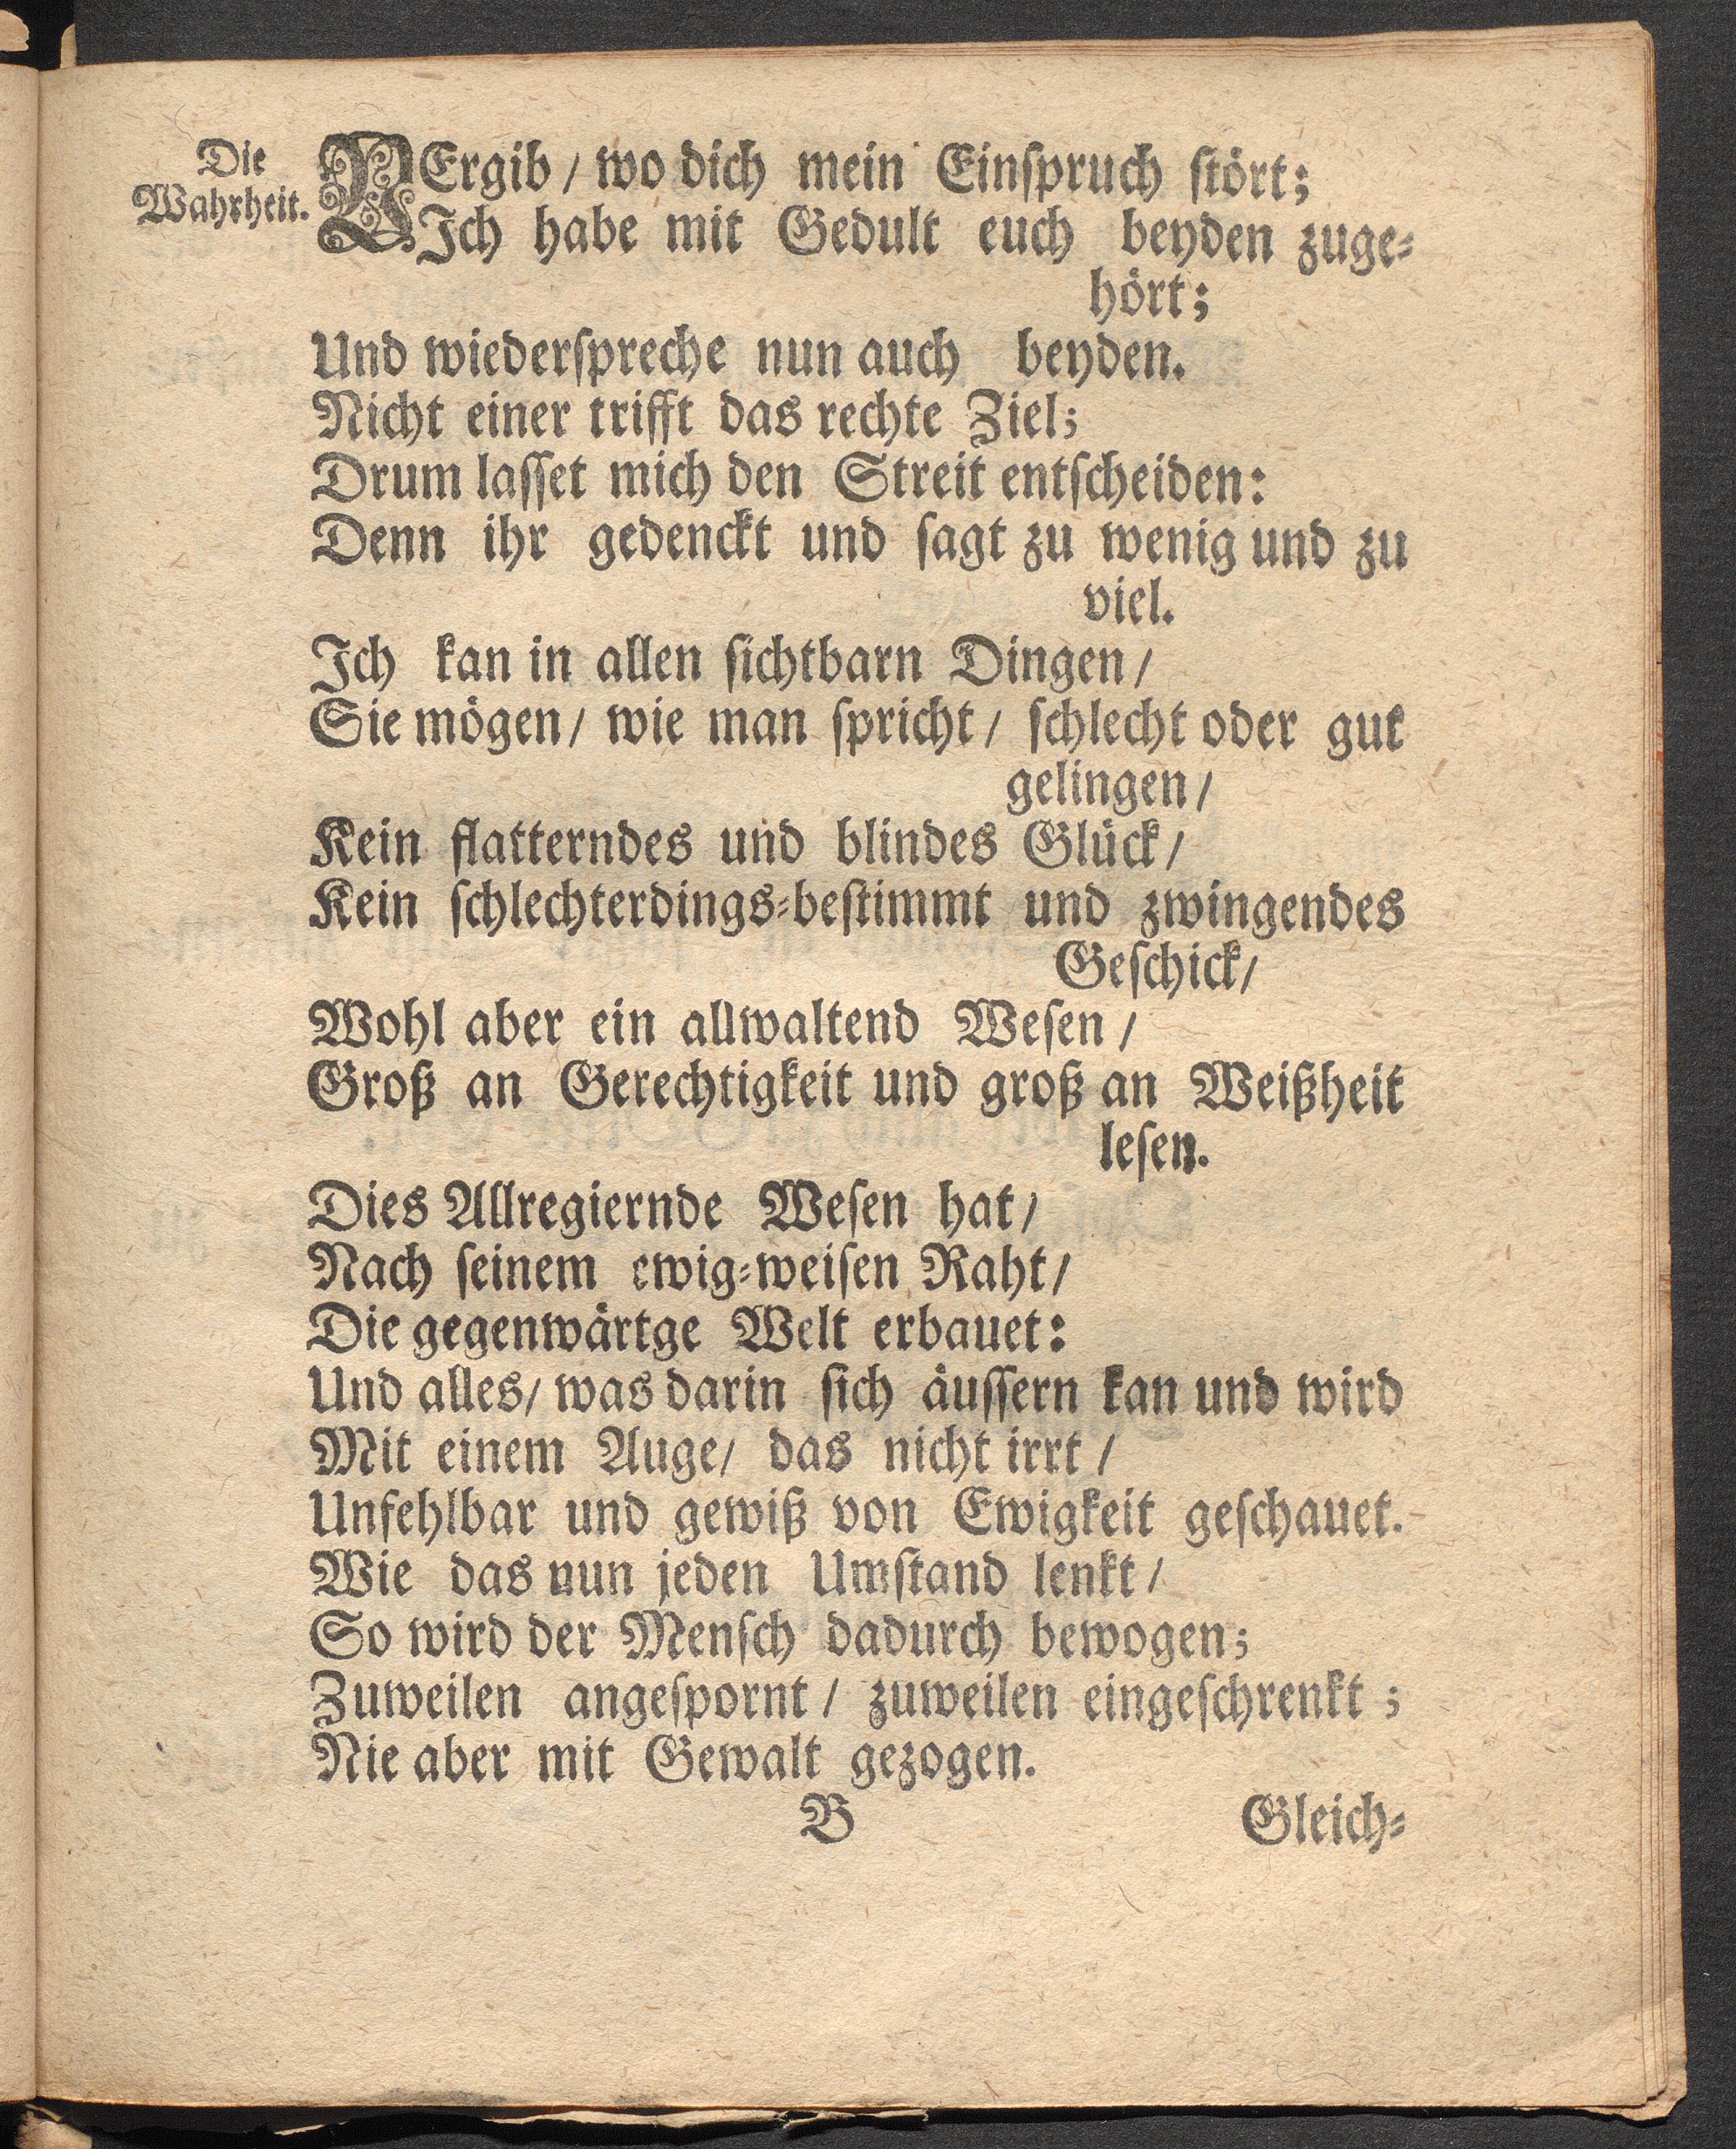 Die
Wahrheit.
VErgib / wo dich mein Einspruch stört;
Ich habe mit Gedult euch beyden zuge-
hört;
Und wiederspreche nun auch beyden.
Nicht einer trifft das rechte Ziel;
Drum lasset mich den Streit entscheiden:
Denn ihr gedenckt und sagt zu wenig und zu
viel.
Ich kan in allen sichtbarn Dingen /
Sie mögen / wie man spricht / schlecht oder gut
gelingen /
Kein flatterndes und blindes Glück /
Kein schlechterdings-bestimmt und zwingendes
Geschick /
Wohl aber ein allwaltend Wesen /
Groß an Gerechtigkeit und groß an Weißheit
lesen.
Dies Allregiernde Wesen hat /
Nach seinem ewig-weisen Raht /
Die gegenwärtge Welt erbauet:
Und alles / was darin sich äussern kan und wird
Mit einem Auge / das nicht irrt /
Unfehlbar und gewiß von Ewigkeit geschauet.
Wie das nun jeden Umstand lenkt /
So wird der Mensch dadurch bewogen;
Zuweilen angespornt / zuweilen eingeschrenkt ;
Nie aber mit Gewalt gezogen.
B
Gleich-